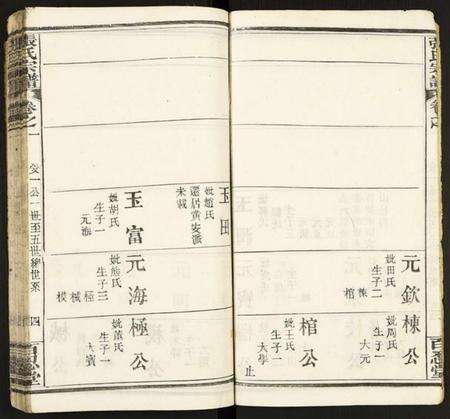 張氏宗譜
卷之
元欽
妣田氏
生子二
棟
棺
棟公
妣周氏
生子一
大元
棺公
妣王氏
生子一
大學 止
百忍堂
張氏宗譜
卷之一
玉田
妣趙氏
遷居黃安派
未載
玉富
妣胡氏
生子一
元海
元海
妣熊氏
生子三
極
棫
樸
極公
妣董氏
生子一
大賓
一世至五世總世系
四
百忍堂